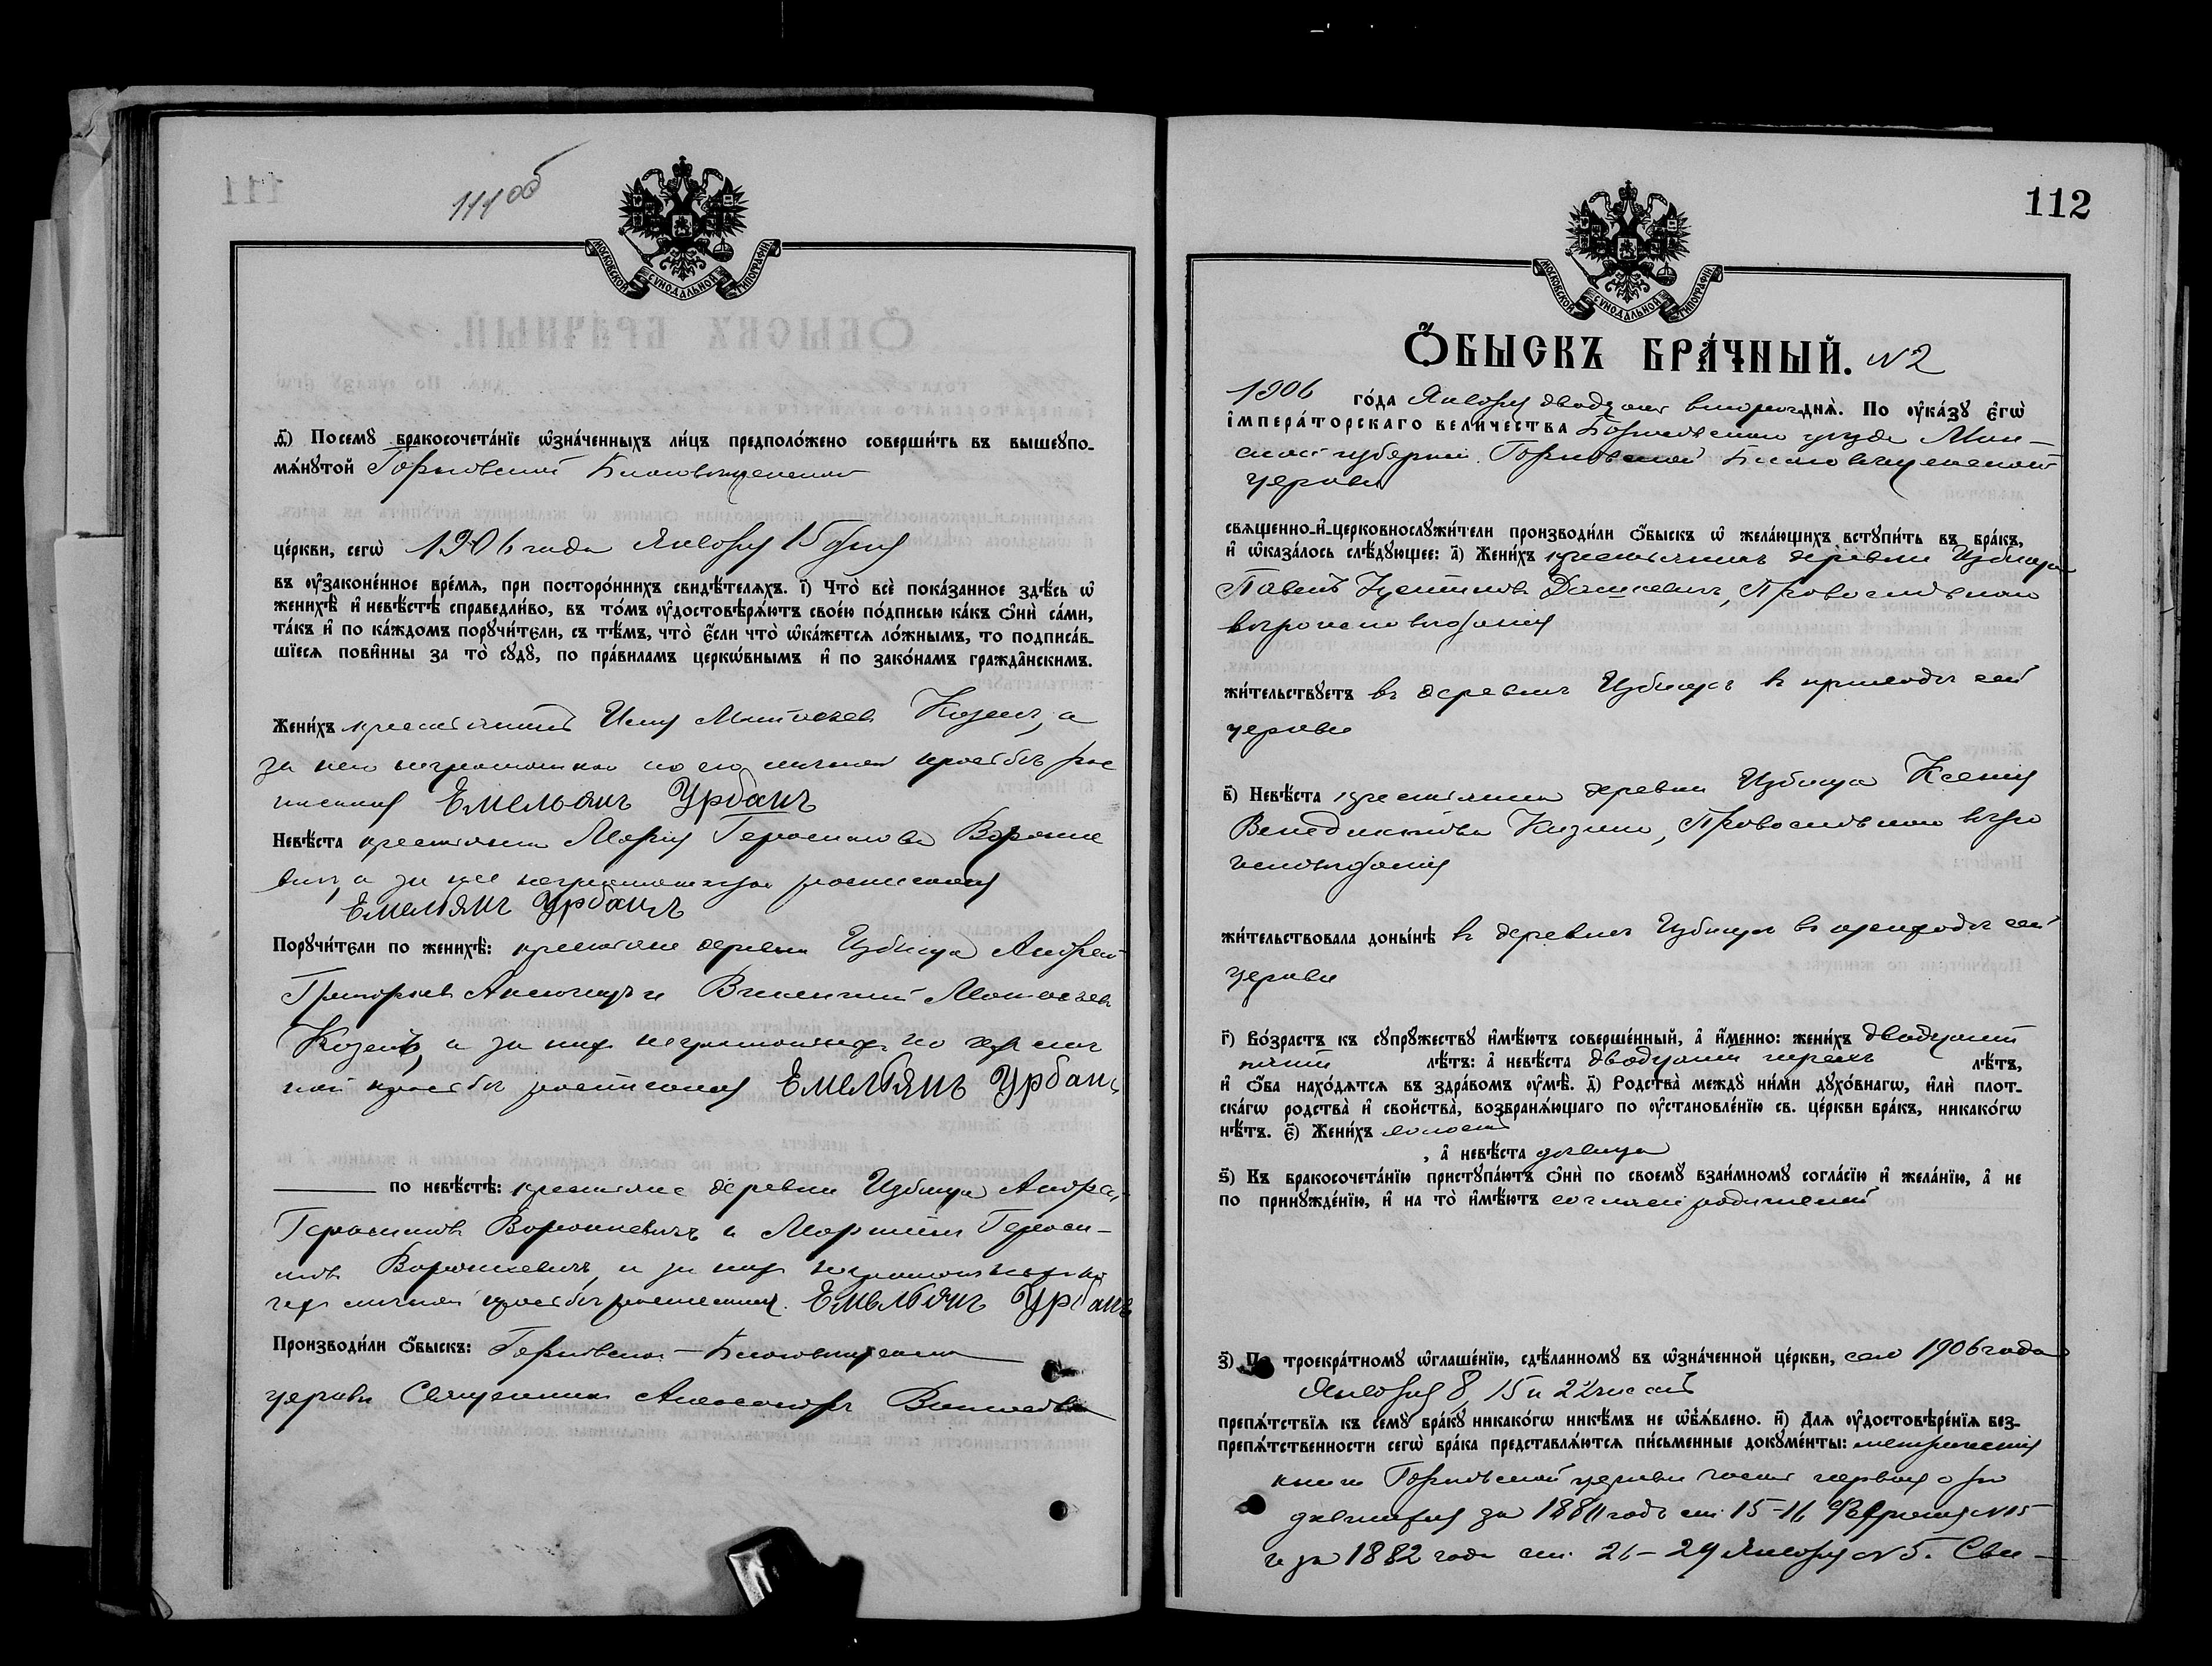 111об
МОСКОВСКОЙ СѴНОДАЛЬНОЙ ТИПОГРАФІИ
ѳ҃) Посемꙋ бракосочета́нїе ѡ҆зна́ченныхъ ли́цъ предполо́жено соверши́ть въ вышеꙋпо-
мѧ́нꙋтой Горковской Благовѣщенской
це́ркви, сегѡ̀ 1906 года Января 15 дня
въ ᲂу҆законе́нное вре́мѧ, при посторо́ннихъ свидѣ́телѧхъ. і҃) Что̀ всѐ пока́занное здѣ́сь ѡ҆
женихѣ̀ и҆ невѣ́стѣ справедли́во, въ то́мъ ᲂу҆достовѣрѧ́ютъ свое́ю по́дписью ка́къ ѻ҆нѝ са́ми,
та́къ и҆ по ка́ждомъ порꙋчи́тели, съ тѣ́мъ, что̀ є҆́сли что̀ ѡ҆ка́жетсѧ ло́жнымъ, то подписа́в-
шїесѧ пови́нны за то̀ сꙋдꙋ̀, по пра́виламъ церко́внымъ и҆ по зако́намъ гражда́нскимъ.
Жени́хъ крестьянинъ Козелъ, а
за него неграмотнаго по его личной просьбѣ рос
писался Емельянъ Урбанъ
Невѣ́ста крестьянка Марія Герасимова Вороне
вичъ, а за нее неграмотную росписался
Емельянъ Урбанъ
Порꙋчи́тєли по женихѣ̀: крестьяне деревни Избища Андрей
Григорьевъ и Викентій
Козелъ, а за нихъ неграмотныхъ по ихъ лич
ной просьбѣ росписался Емельянъ Урбанъ
по невѣ́стѣ: крестьяне деревни Избища Андрей
Герасимовъ Вороневичъ и Мартинъ Гераси-
мовъ Вороневичъ, а за нихъ неграмотныхъ по
ихъ личной просьбѣ росписался Емельянъ Урбанъ
Производи́ли ѻ҆́быскъ: Горковской - Благовѣщенской
церкви Священникъ Александръ
112
МОСКОВСКОЙ СѴНОДАЛЬНОЙ ТИПОГРАФІИ
ѺБЫСКЪ БРА́ЧНЫЙ. N 2
1906 го́да Января двадцать второго днѧ̀. По ᲂу҆ка́зꙋ є҆гѡ̀
і҆мпера́торскаго вели́чества Борисовскаго уѣзда Мин-
ской губерніи Горковской Благовѣщенской
церкви
свѧщенно-и҆-церковнослꙋжи́тели производи́ли ѻ҆́быскъ ѡ҆ жела́ющихъ встꙋпи́ть въ бра́къ,
и҆ ѡ҆каза́лось слѣ́дꙋющее: а҃) Жени́хъ крестьянинъ деревни Избища
Павелъ Устиновъ Дашкевичъ, Православнаго
вѣроисповѣданія
жи́тельствꙋетъ въ деревнѣ Избищѣ въ приходѣ сей
церкви
в҃) Невѣ́ста крестьянка деревни Избища Ксенія
Венедиктова Козелъ, Православнаго вѣро
исповѣданія
жи́тельствовала доны́нѣ въ деревнѣ Избищѣ въ приходѣ сей
церкви
г҃) Во́зрастъ къ сꙋпрꙋ́жествꙋ и҆мѣ́ютъ соверше́нный, а҆ и҆́менно: жени́хъ двадцати
пяти лѣ́тъ: а҆ невѣ́ста двадцати четырехъ лѣ́тъ,
и҆ ѻ҆́ба нахо́дѧтсѧ въ здра́вомъ ᲂу҆мѣ̀. д҃) Родства̀ междꙋ ни́ми дꙋхо́внагѡ, и҆лѝ плот-
ска́гѡ родства̀ и҆ свойства̀, возбранѧ́ющаго по ᲂу҆становле́нїю св. це́ркви бра́къ, никако́гѡ
нѣ́тъ. є҃) Жени́хъ холостъ
, а҆ невѣ́ста дѣвица
ѕ҃) Къ бракосочета́нїю пристꙋпа́ютъ ѻ҆нѝ по своемꙋ̀ взаи́мномꙋ согла́сїю и҆ жела́нїю, а҆ не
по принꙋжде́нїю, и҆ на то̀ и҆мѣ́ютъ согласіе родителей
з҃) По троекра́тномꙋ ѡ҆глаше́нїю, сдѣ́ланномꙋ въ ѡ҆зна́ченной це́ркви, сего 1906 года
Января 8, 15 и 22 чиселъ
препѧ́тствїѧ къ семꙋ̀ бра́кꙋ никако́гѡ никѣ́мъ не ѡ҆б̾ѧ́влено. и҃) Длѧ ᲂу҆достовѣре́нїѧ без-
препѧ́тственности сегѡ̀ бра́ка представлѧ́ютсѧ пи́сьменные докꙋме́нты: метрическія
книги Горковской церкви часть первая о ро
дившихся за 1881 годъ ст. 15-16 Февраля N 15
и за 1882 годъ ст. 26-29 Января N 5. Сви-